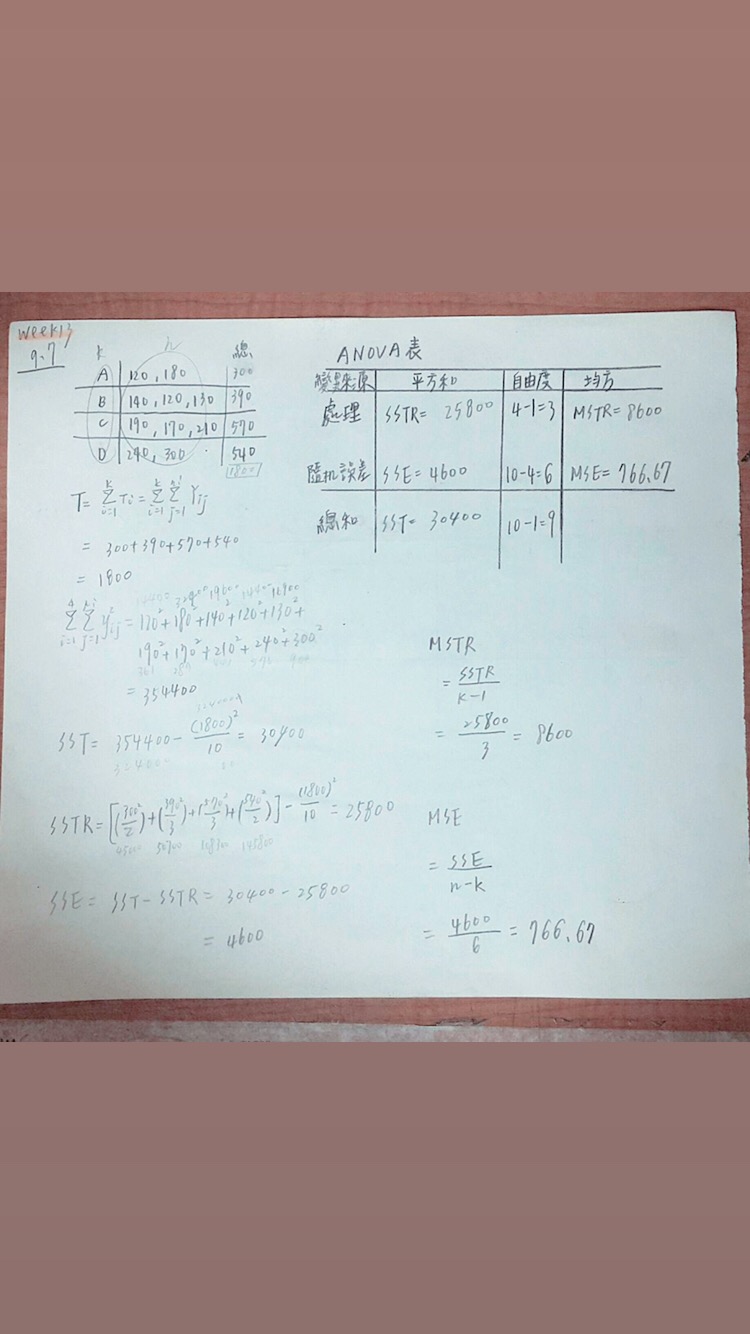 week13
9.7
k n 總
A 120, 180 300
B 140, 120, 130 390
C 190, 170, 210 570
D 240, 300 540
1800
T = Σ(i=1→k) Ti = Σ(i=1→k) Σ(j=1→ni) Yij
= 300+390+570+540
= 1800
Σ(i=1→4) Σ(j=1→ni) y²ij = 120²+180²+140²+120²+130²+
190²+170²+210²+240²+300²
= 354400
SST = 354400 - (1800)²/10 = 30400
SSTR = [(300²/2)+(390²/3)+(570²/3)+(540²/2)] - (1800)²/10 = 25800
45000 50700 108300 145800
SSE = SST - SSTR = 30400 - 25800
= 4600
ANOVA表
變異來源 平方和 自由度 均方
處理 SSTR = 25800 4-1=3 MSTR = 8600
隨机誤差 SSE = 4600 10-4=6 MSE = 766.67
總和 SST = 30400 10-1=9
MSTR
= SSTR/k-1
= 25800/3 = 8600
MSE
= SSE/n-k
= 4600/6 = 766.67